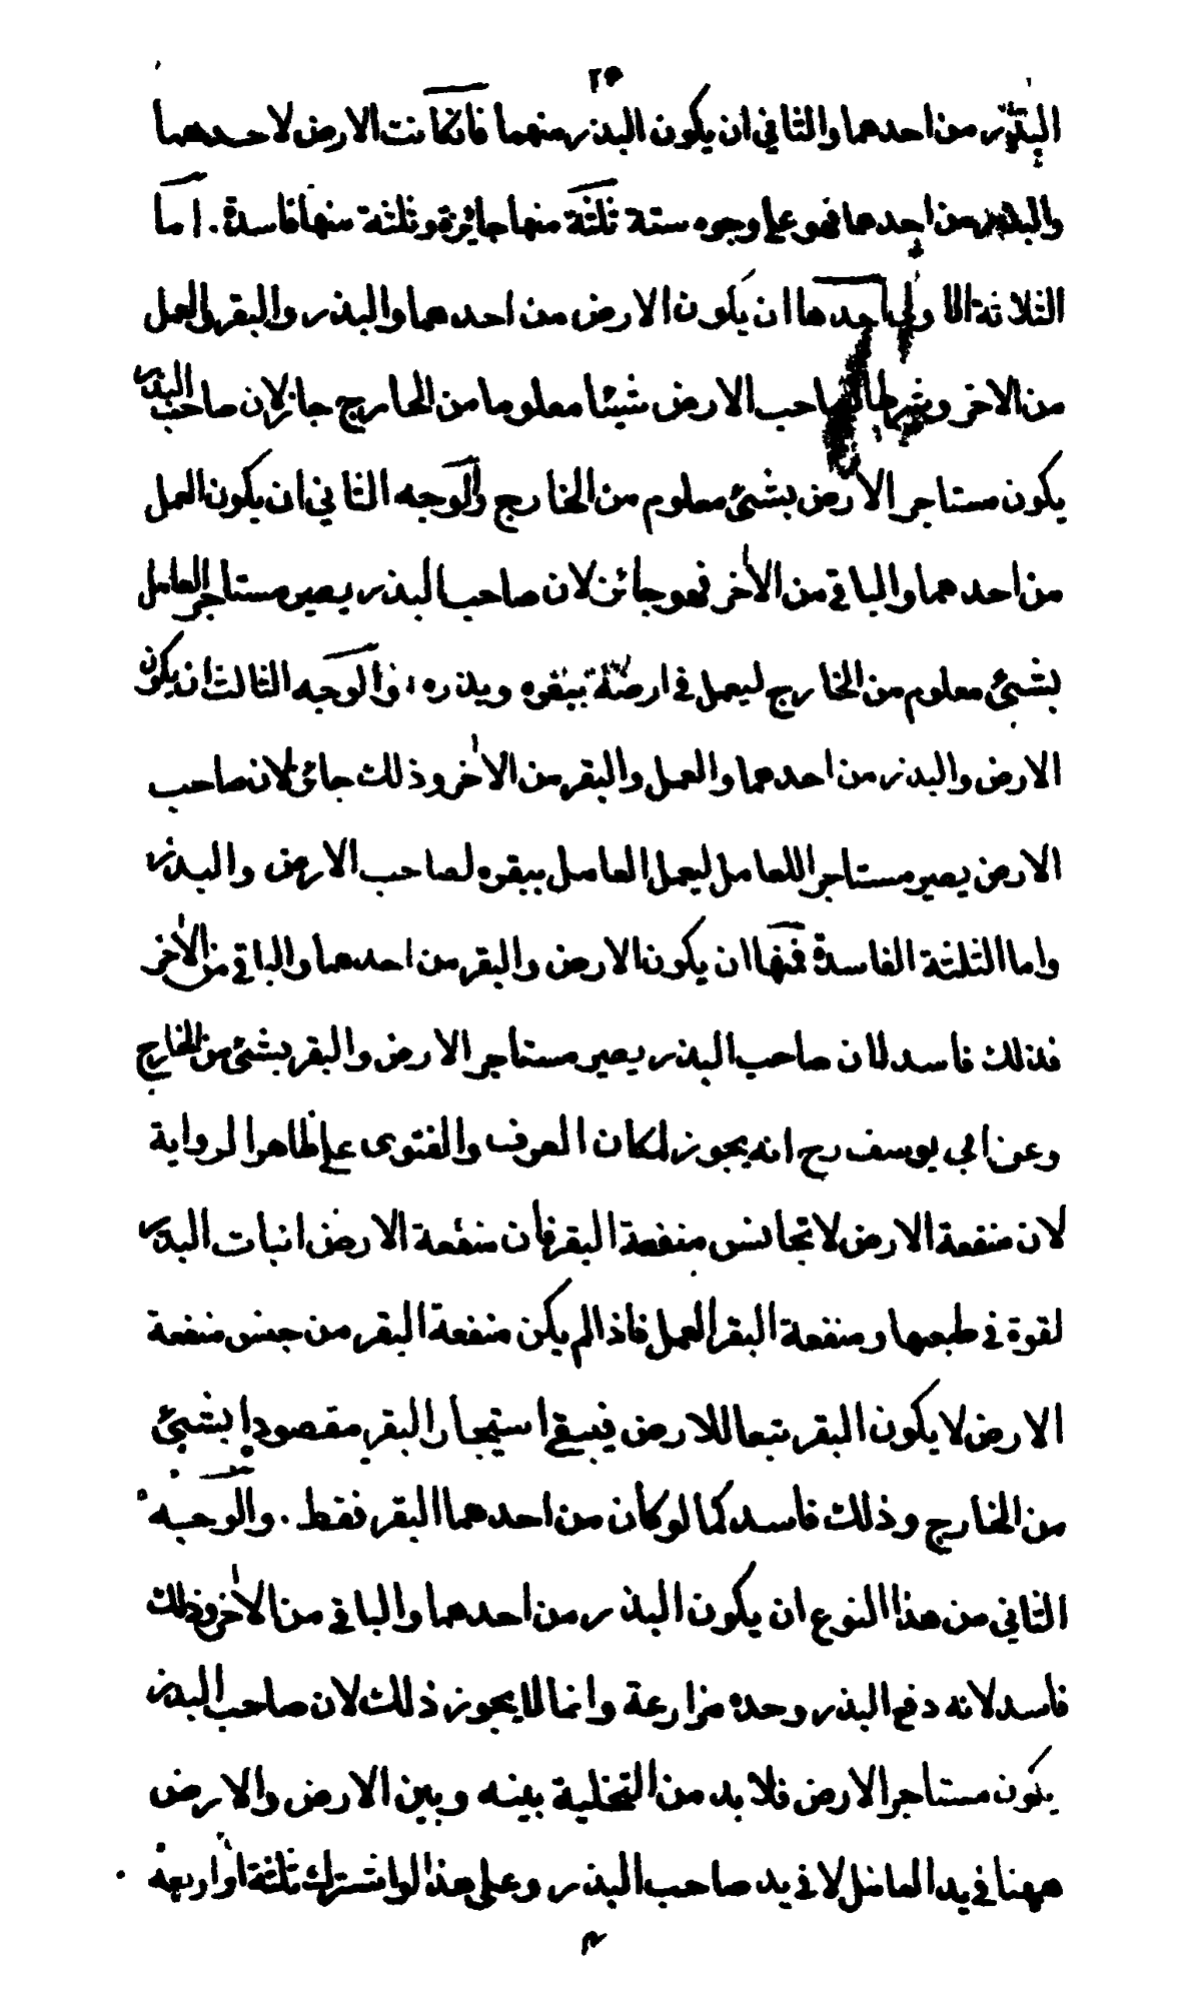 ٢٥
البذر من احدهما والثاني ان يكون البذر منهما فانكانت الارض لاحدهما
والبذر من احدهما فهو على وجوه ستة ثلثة منها جائزة وثلثة منها فاسدة . اما
الثلاثة الاولى احدها ان يكون الارض من احدهما والبذر والبقر والعمل
من الاخر وشرطا لصاحب الارض شيئا معلوما من الخارج جاز لان صاحب البذر
يكون مستاجر الارض بشئ معلوم من الخارج والوجه الثاني ان يكون العمل
من احدهما والباقي من الاخر فهو جائز لان صاحب البذر يصير مستاجر العامل
بشئ معلوم من الخارج ليعمل في ارضه ببقره وبذره ، والوجه الثالث ان يكون
الارض والبذر من احدهما والعمل والبقر من الاخر وذلك جائز لان صاحب
الارض يصير مستاجرا للعامل ليعمل العامل ببقره لصاحب الارض والبذر
واما الثلثة الفاسدة فمنها ان يكون الارض والبقر من احدهما والباقي من الاخر
فذلك فاسد لان صاحب البذر يصير مستاجر الارض والبقر بشئ من الخارج
وعن ابي يوسف رح انه يجوز لمكان العرف والفتوى على ظاهر الرواية
لان منفعة الارض لا تجانس منفعة البقر فان منفعة الارض انبات البذر
لقوة في طبعها ومنفعة البقر العمل فاذا لم يكن منفعة البقر من جنس منفعة
الارض لا يكون البقر تبعا للارض فيبقى استيجار البقر مقصودا بشئ
من الخارج وذلك فاسد كما لو كان من احدهما البقر فقط . والوجه
الثاني من هذا النوع ان يكون البذر من احدهما والباقي من الاخر وذلك
فاسد لانه دفع البذر وحده مزارعة وانما لا يجوز ذلك لان صاحب البذر
يكون مستاجر الارض فلا بد من التخلية بينه وبين الارض والارض
ههنا في يد العامل لا في يد صاحب البذر وعلى هذا لو اشترك ثلثة او اربعة